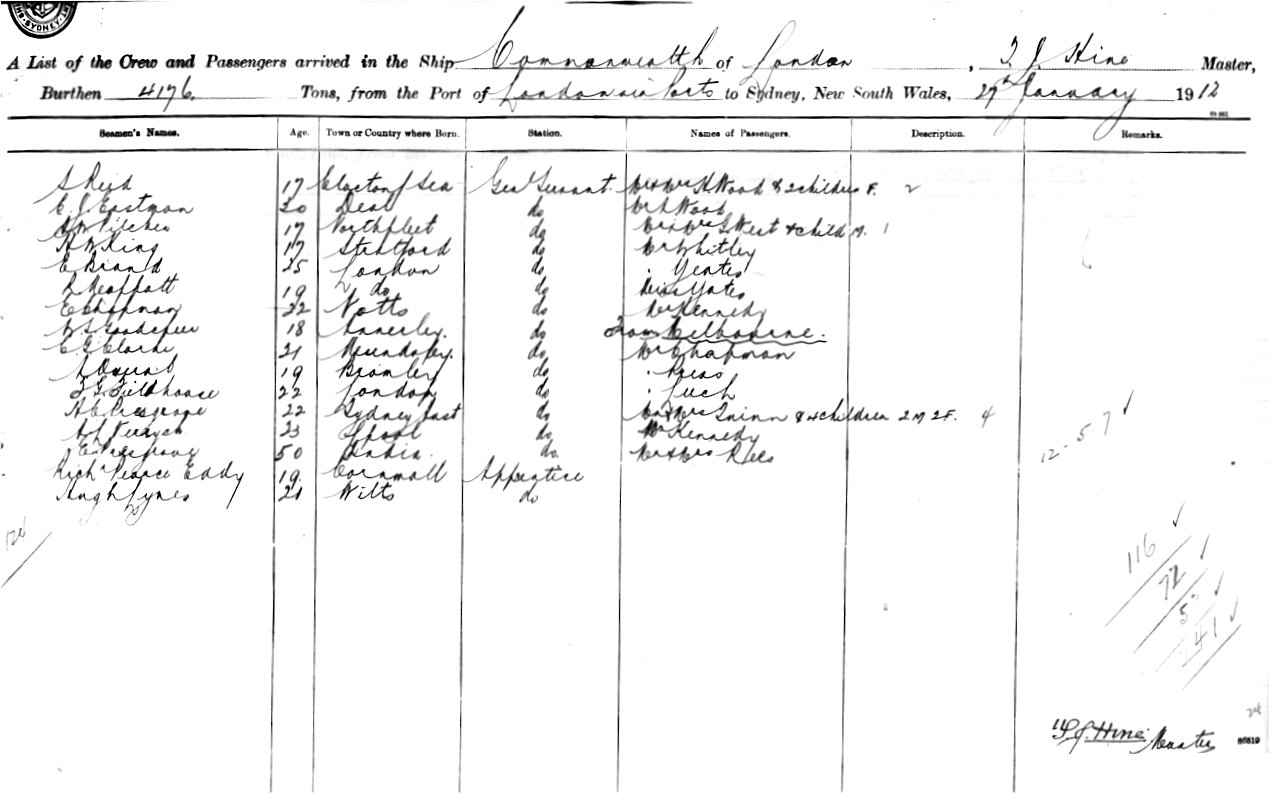 SYDNEY
A List of the Crew and Passengers arrived in the Ship Commonwealth of London, T. J. Hine Master,
Burthen 4176 Tons, from the Port of London via Ports to Sydney, New South Wales, 27th January 1912
Seamen's Names. Age. Town or Country where Born. Station. Names of Passengers. Description. Remarks.
S Reed 17 Clacton / Sea Genl Servant Mr & Mrs H Wood & 2 children F. 2
E. J. Eastman 20 Deal do Mr A Wood
Pilcher 17 Northfleet do Mr & Mrs G West & child M. 1
A W King 17 Stratford do Mr Whitley
E Brand 25 London do " Yeates
R Moffatt 19 do do Miss Yates
E Chapman 22 Notts do Mr Kennedy
18 Annerley. do From Melbourne.
C. G. Clarke 21 do Mr Chapman
A 19 Bromley do "
T. G. Fieldhouse 22 London do " Luch
A C Presgrave 22 Sydney do Mr & Mrs Quinn & 4 children 2 M 2 F. 4
23 L'pool do Mr Kennedy
E Presgrave 50 India do Mr & Mrs Rees
Richd Pearce Eddy 19 Cornwall Apprentice
Hugh Lynes 21 Wilts do
12-5-7 ✓
116 ✓
72 ✓
5 ✓
241 ✓
T. J. Hine Master
86519